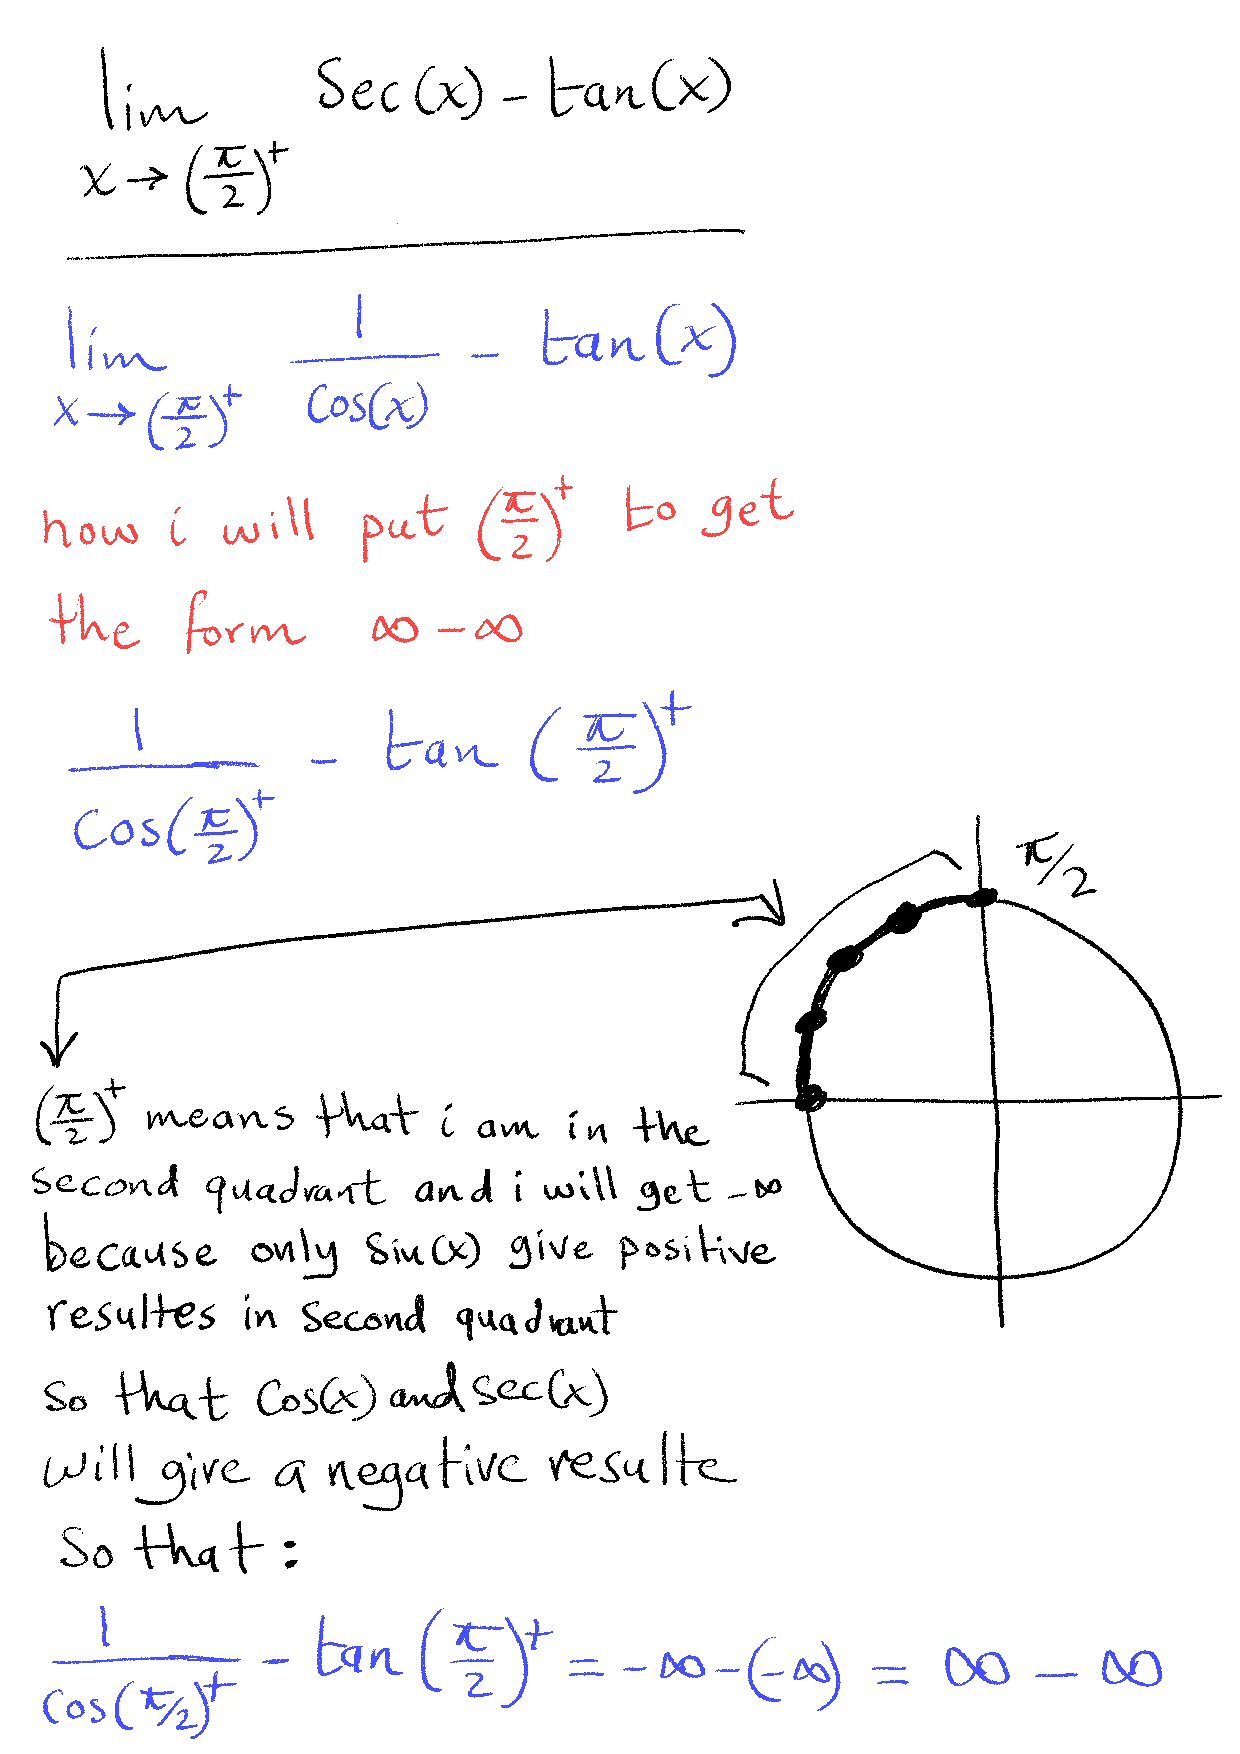 lim Sec(x) - tan(x)
x → (π/2)⁺
lim 1/cos(x) - tan(x)
x → (π/2)⁺
now i will put (π/2)⁺ to get
the form ∞ - ∞
1/Cos(π/2)⁺ - tan (π/2)⁺
π/2
(π/2)⁺ means that i am in the
second quadrant and i will get -∞
because only sin(x) give positive
resultes in second quadrant
so that cos(x) and sec(x)
will give a negative resulte
so that :
1/cos(π/2)⁺ - tan (π/2)⁺ = -∞ - (-∞) = ∞ - ∞